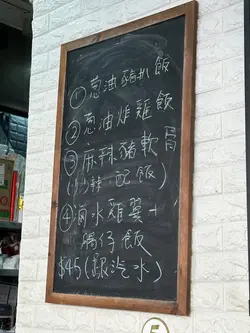 ①葱油豬扒飯
②葱油炸雞飯
③麻辣豬軟骨
(少辣 配飯)
④卤水雞翼+
腸仔飯
$45(跟汽水)
5